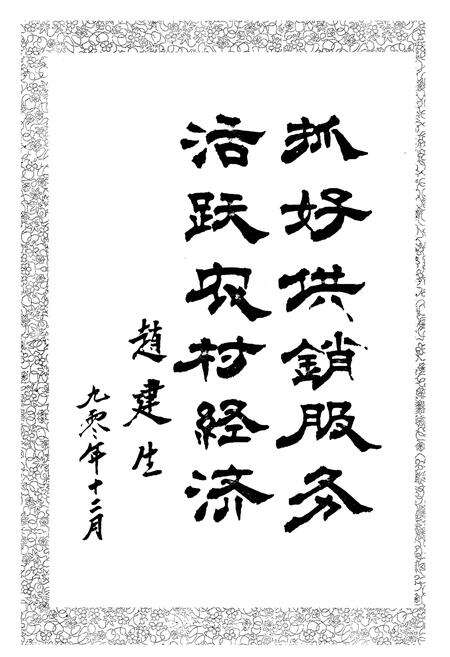 抓好供銷服务
活跃农村经济
趙建生
九零年十二月